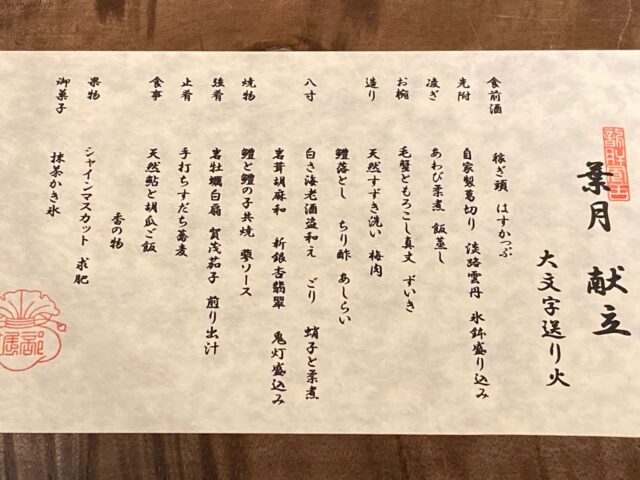 葉月 献立
大文字送り火
食前酒 稼ぎ頭 はすかつぷ
先附 自家製葛切り 淡路雲丹 氷鉢盛り込み
凌ぎ あわび柔煮 飯蒸し
お椀 毛蟹ともろこし真丈 ずいき
造り 天然すずき洗い 梅肉
鱧落とし ちり酢 あしらい
八寸 白さ海老酒盗和え ごり 蛸子と柔煮
岩茸胡麻和 新銀杏翡翠 鬼灯盛込み
焼物 鱧と鱧の子共焼 蓼ソース
強肴 岩牡蠣白扇 賀茂茄子 煎り出汁
止肴 手打ちすだち蕎麦
食事 天然鮎と胡瓜ご飯
香の物
果物 シャインマスカット 求肥
御菓子 抹茶かき氷